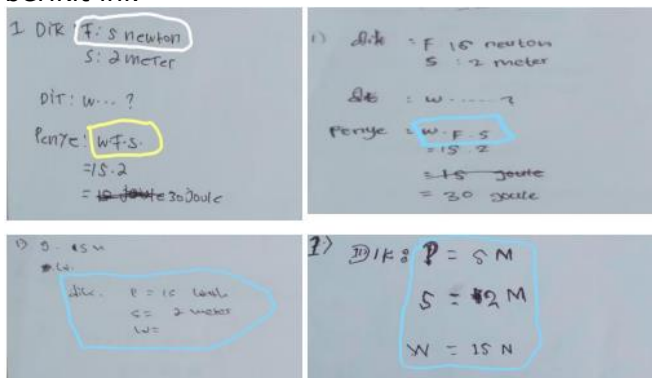 berikut ini:
1 Dik : F : 5 newton
S : 2 meter
DiT : w... ?
Penye : w F.s.
= 15.2
= 30 Joule
1) dik : F 15 newton
S : 2 meter
dit : w ..... ?
Penye : w . F . S
= 15 . 2
= 15 joule
= 30 joule
dik. P = 15
S = 2 meter
W =
1) Dik : P = 5 M
S = 2 M
W = 15 N